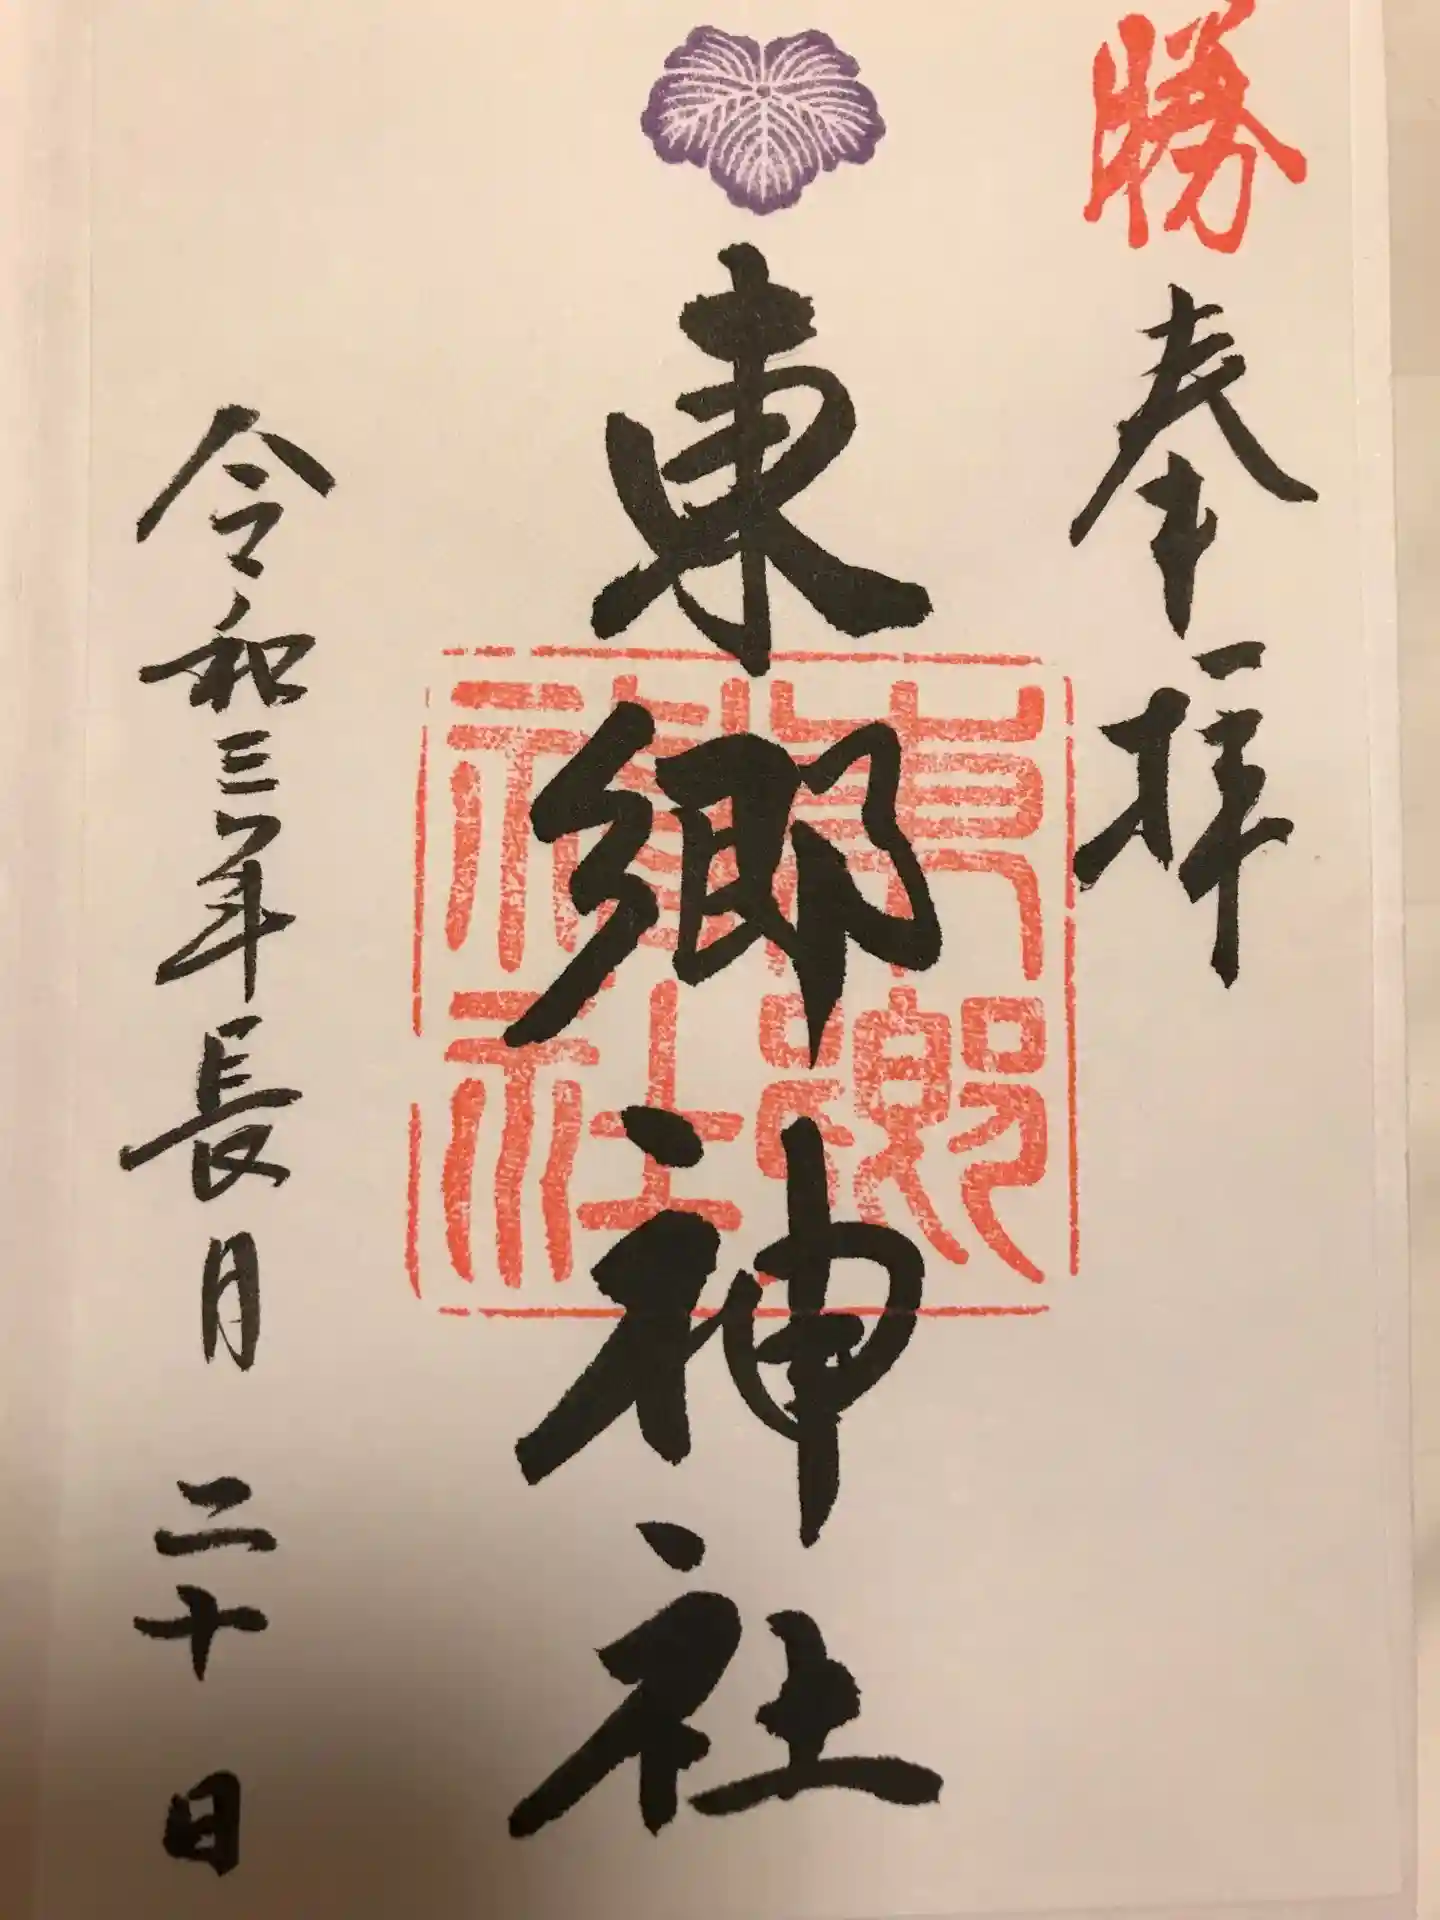 勝
奉拝
東郷神社
東郷神社
令和三年長月二十日